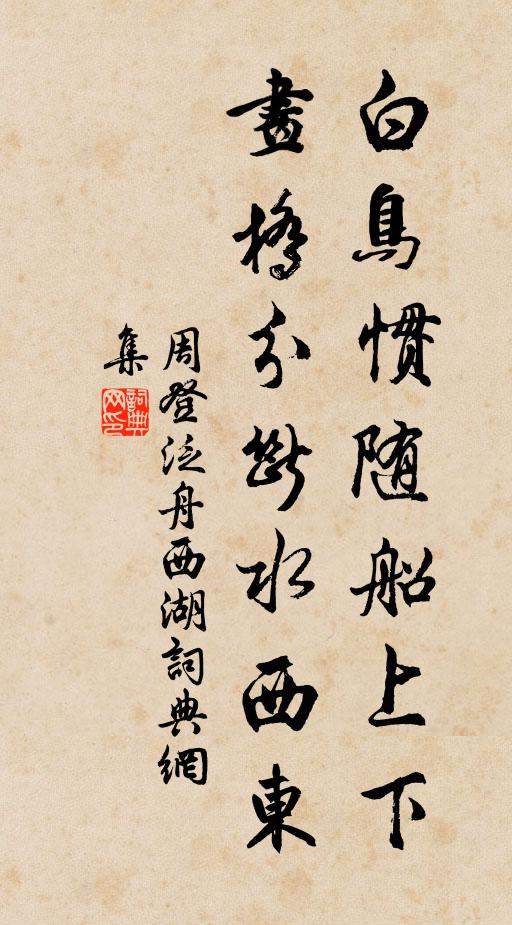 白鳥慣随船上下
畫橋分斷水西東
周登泛舟西湖詞典網
集
詞典
网印